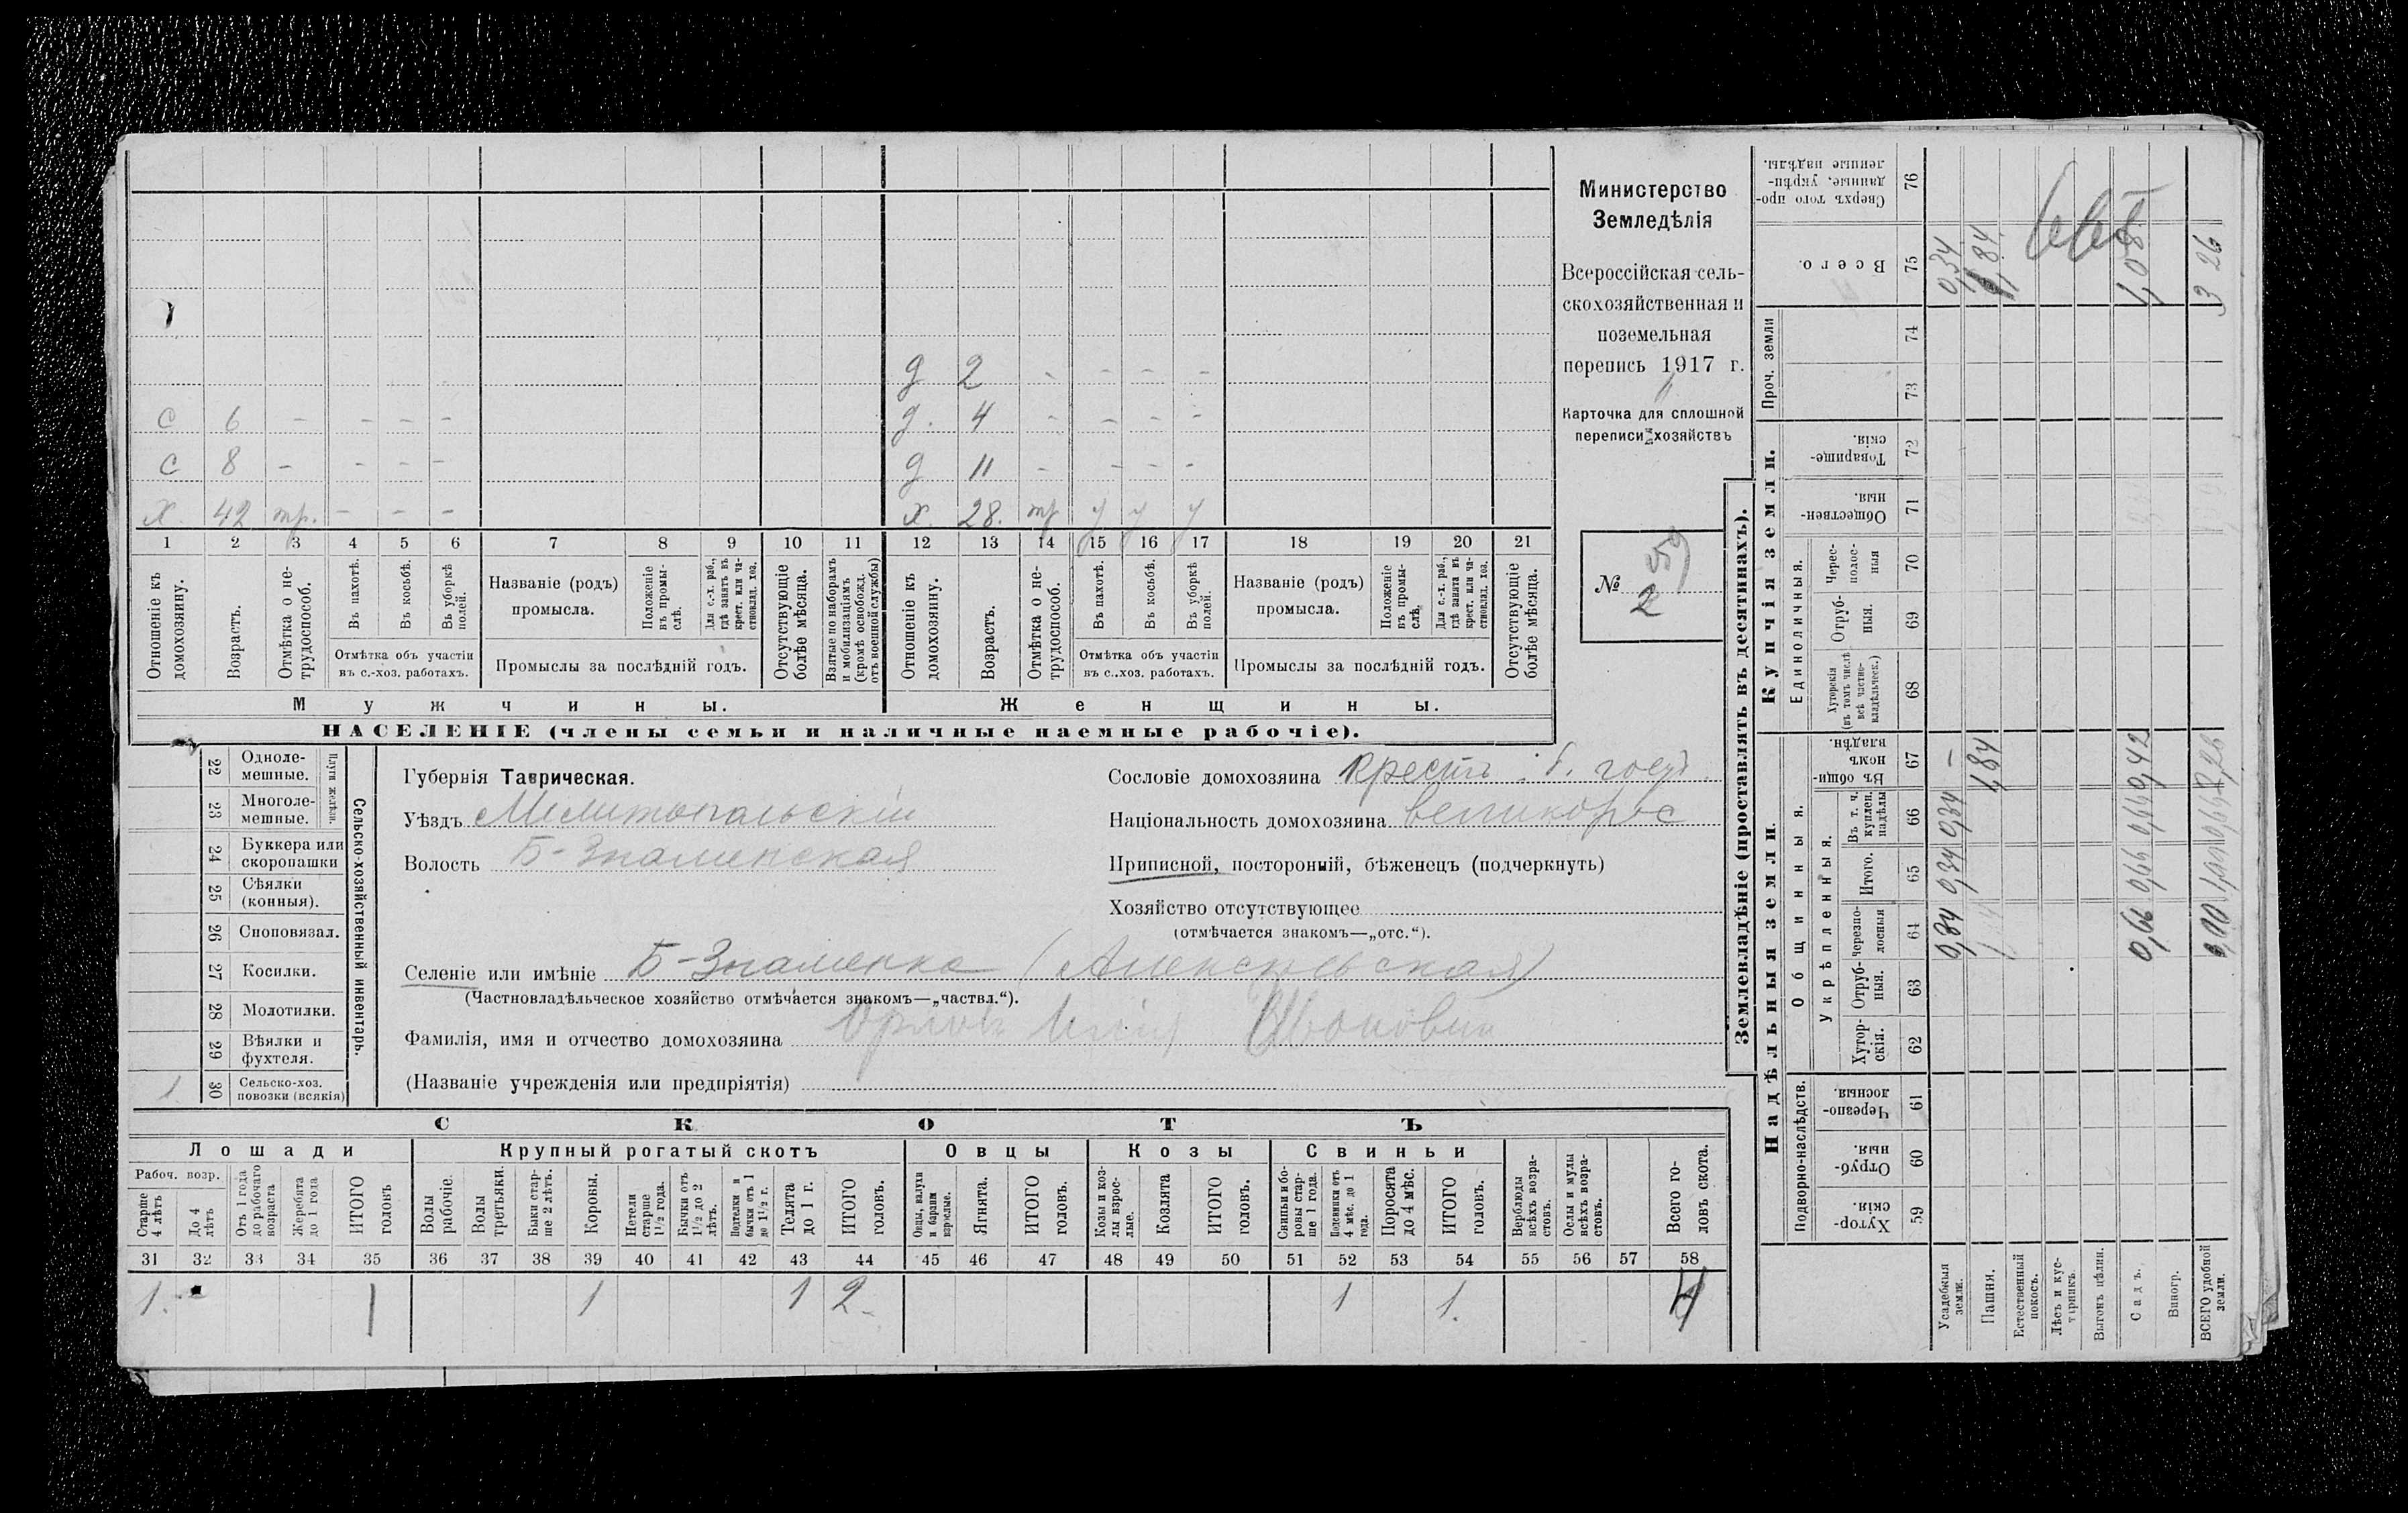 д 2 - - - -
с 6 - - - - д. 4 - - - -
с 8 - - - - д 11 - - - -
х 42 тр. - - - х. 28. тр у у у
1 2 3 4 5 6 7 8 9 10 11 12 13 14 15 16 17 18 19 20 21
Отношеніе къ домохозяину.
Возрастъ.
Отмѣтка о не-трудоспособ.
Въ пахотѣ.
Въ косьбѣ.
Въ уборкѣ полей.
Отмѣтка объ участіи
въ с.-хоз. работахъ.
Названіе (родъ)
промысла.
Положеніе въ промы-слѣ.
Для с.-х. раб., гдѣ занятъ въ крест. или ча-стновлад. хоз.
Промыслы за послѣдній годъ.
Отсутствующіе болѣе мѣсяца.
Взятые по наборамъ и мобилизаціямъ (кромѣ освобожд. отъ военной службы)
Отношеніе къ домохозяину.
Возрастъ.
Отмѣтка о не-трудоспособ.
Въ пахотѣ.
Въ косьбѣ.
Въ уборкѣ полей.
Отмѣтка объ участіи
въ с.-хоз. работахъ.
Названіе (родъ)
промысла.
Положеніе въ промы-слѣ.
Для с.-х. раб., гдѣ занята въ крест. или ча-стновлад. хоз.
Промыслы за послѣдній годъ.
Отсутствующіе болѣе мѣсяца.
Мужчины. Женщины.
НАСЕЛЕНІЕ (члены семьи и наличные наемные рабочіе).
Министерство
Земледѣлія
Всероссійская сель-
скохозяйственная и
поземельная
перепись 1917 г.
Карточка для сплошной
переписи хозяйствъ
№ 59
2
Сельско-хозяйственный инвентарь.
Плуги желѣзн.
22 Одноле-мешные.
23 Многоле-мешные.
24 Буккера или скоропашки
25 Сѣялки (конныя).
26 Сноповязал.
27 Косилки.
28 Молотилки.
29 Вѣялки и фухтеля.
1 30 Сельско-хоз. повозки (всякія)
Губернія Таврическая.
Уѣздъ Мелитопольскій
Волость Б-Знаменская
Сословіе домохозяина крест. б. госуд.
Національность домохозяина великорос
Приписной, посторонній, бѣженецъ (подчеркнуть)
Хозяйство отсутствующее
(отмѣчается знакомъ—„отс.“).
Селеніе или имѣніе Б-Знаменка (Алексѣевская)
(Частновладѣльческое хозяйство отмѣчается знакомъ—„частвл.“).
Фамилія, имя и отчество домохозяина Орловъ Ивановичъ
(Названіе учрежденія или предпріятія)
СКОТЪ
Лошади Крупный рогатый скотъ Овцы Козы Свиньи
Рабоч. возр.
Старше 4 лѣтъ
До 4 лѣтъ
Отъ 1 года до рабочаго возраста
Жеребята до 1 года
ИТОГО головъ
Волы рабочіе.
Волы третьяки.
Быки стар-ше 2 лѣтъ.
Коровы.
Нетели старше 1 1/2 года.
Бычки отъ 1 1/2 до 2 лѣтъ.
Подтелки и бычки отъ 1 до 1 1/2 г.
Телята до 1 г.
ИТОГО головъ.
Овцы, валухи и бараны взрослые.
Ягнята.
ИТОГО головъ.
Козы и коз-лы взрос-лые.
Козлята
ИТОГО головъ.
Свиньи и бо-ровы стар-ше 1 года.
Подсвинки отъ 4 мѣс. до 1 года.
Поросята до 4 мѣс.
ИТОГО головъ.
Верблюды всѣхъ возра-стовъ.
Ослы и мулы всѣхъ возра-стовъ.
Всего го-ловъ скота.
31 32 33 34 35 36 37 38 39 40 41 42 43 44 45 46 47 48 49 50 51 52 53 54 55 56 57 58
1. 1 1 1 2 1 1. 4
Землевладѣніе (проставлять въ десятинахъ).
Надѣльныя земли.
Купчія земли.
Проч. земли
Подворно-наслѣдств.
Общинныя.
Укрѣпленныя.
Единоличныя.
Хутор-скія. 59
Отруб-ныя. 60
Черезпо-лосныя. 61
Хутор-скія. 62
Отруб-ныя. 63
Черезпо-лосныя 64
Итого. 65
Въ т. ч. куплен. надѣлы 66
Въ общи-номъ владѣн. 67
Хуторскія (въ томъ числѣ всѣ частно-владѣльческ.) 68
Отруб-ныя. 69
Черес-полос-ныя 70
Обществен-ныя. 71
Товарище-скія. 72
73
74
Всего. 75
Сверхъ того про-данные, укрѣп-ленные надѣлы. 76
Усадебныя земли. 0,34 0,34 0,34 - 0,34
Пашня. 1,84 1,84
Естественный покосъ.
Лѣсъ и кус-тарникъ.
Выгонъ цѣлин.
Садъ. 0,66 0,66 0,66 0,42 1,08
Виногр.
ВСЕГО удобной земли. 1,00 1,00 3 26